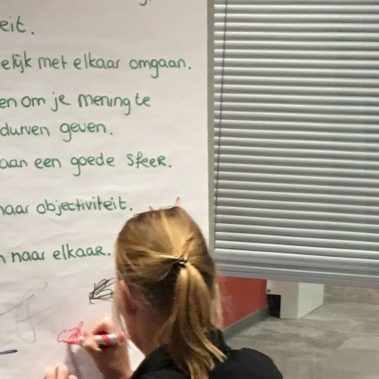 eit.
elijk met elkaar omgaan.
en om je mening te
durven geven.
aan een goede sfeer.
naar objectiviteit.
n naar elkaar.